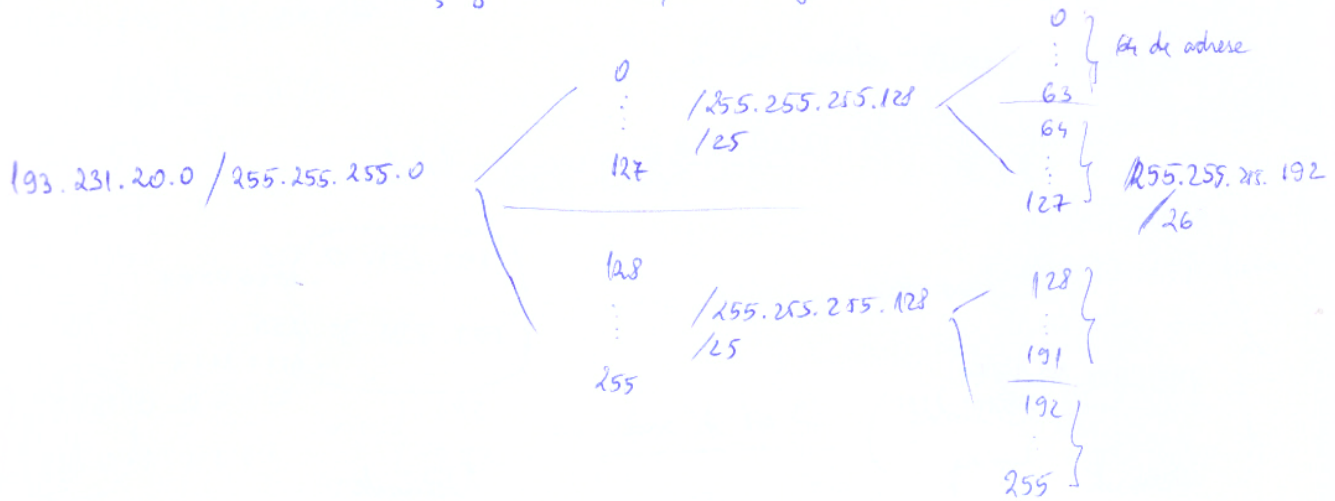 193.231.20.0 / 255.255.255.0
0
127
/255.255.255.128
/25
128
255
/255.255.255.128
/25
0
63
64 de adrese
64
127
255.255.255.192
/26
128
191
192
255